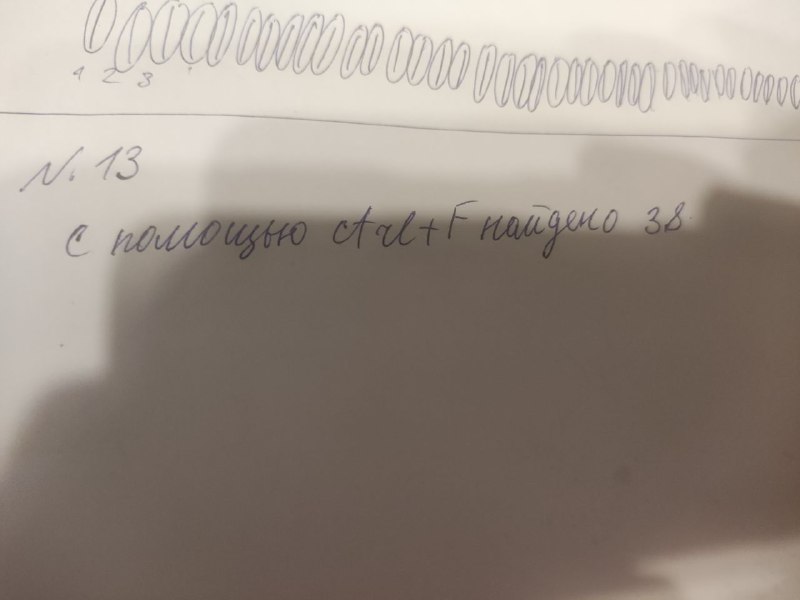 1 2 3
N. 13
С помощью Ctrl+F найдено 38.